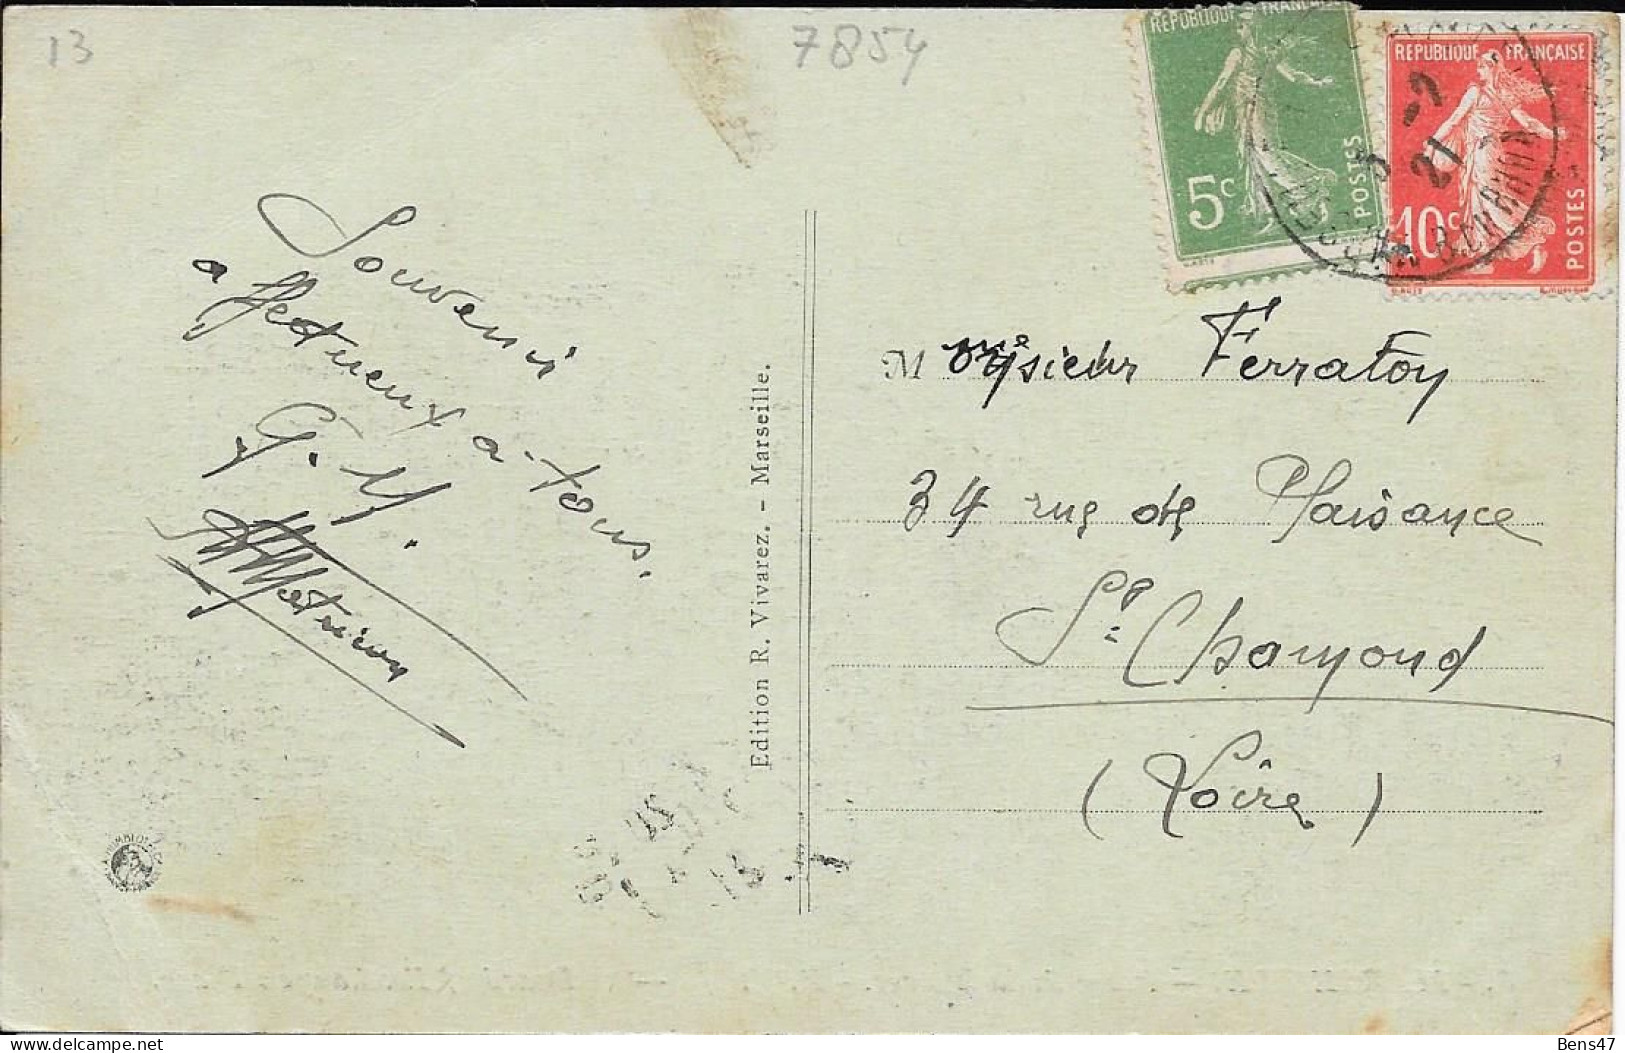 13
7854
REPUBLIQUE FRANÇAISE
5c
POSTES
REPUBLIQUE FRANÇAISE
10c
POSTES
-7
21
Souvenir
affectueux a-tous.
G. M.
Edition R. Vivarez. - Marseille.
Monsieur Ferraton
34 rue de Plaisance
St Chamond
(Loire)
21
Bens47